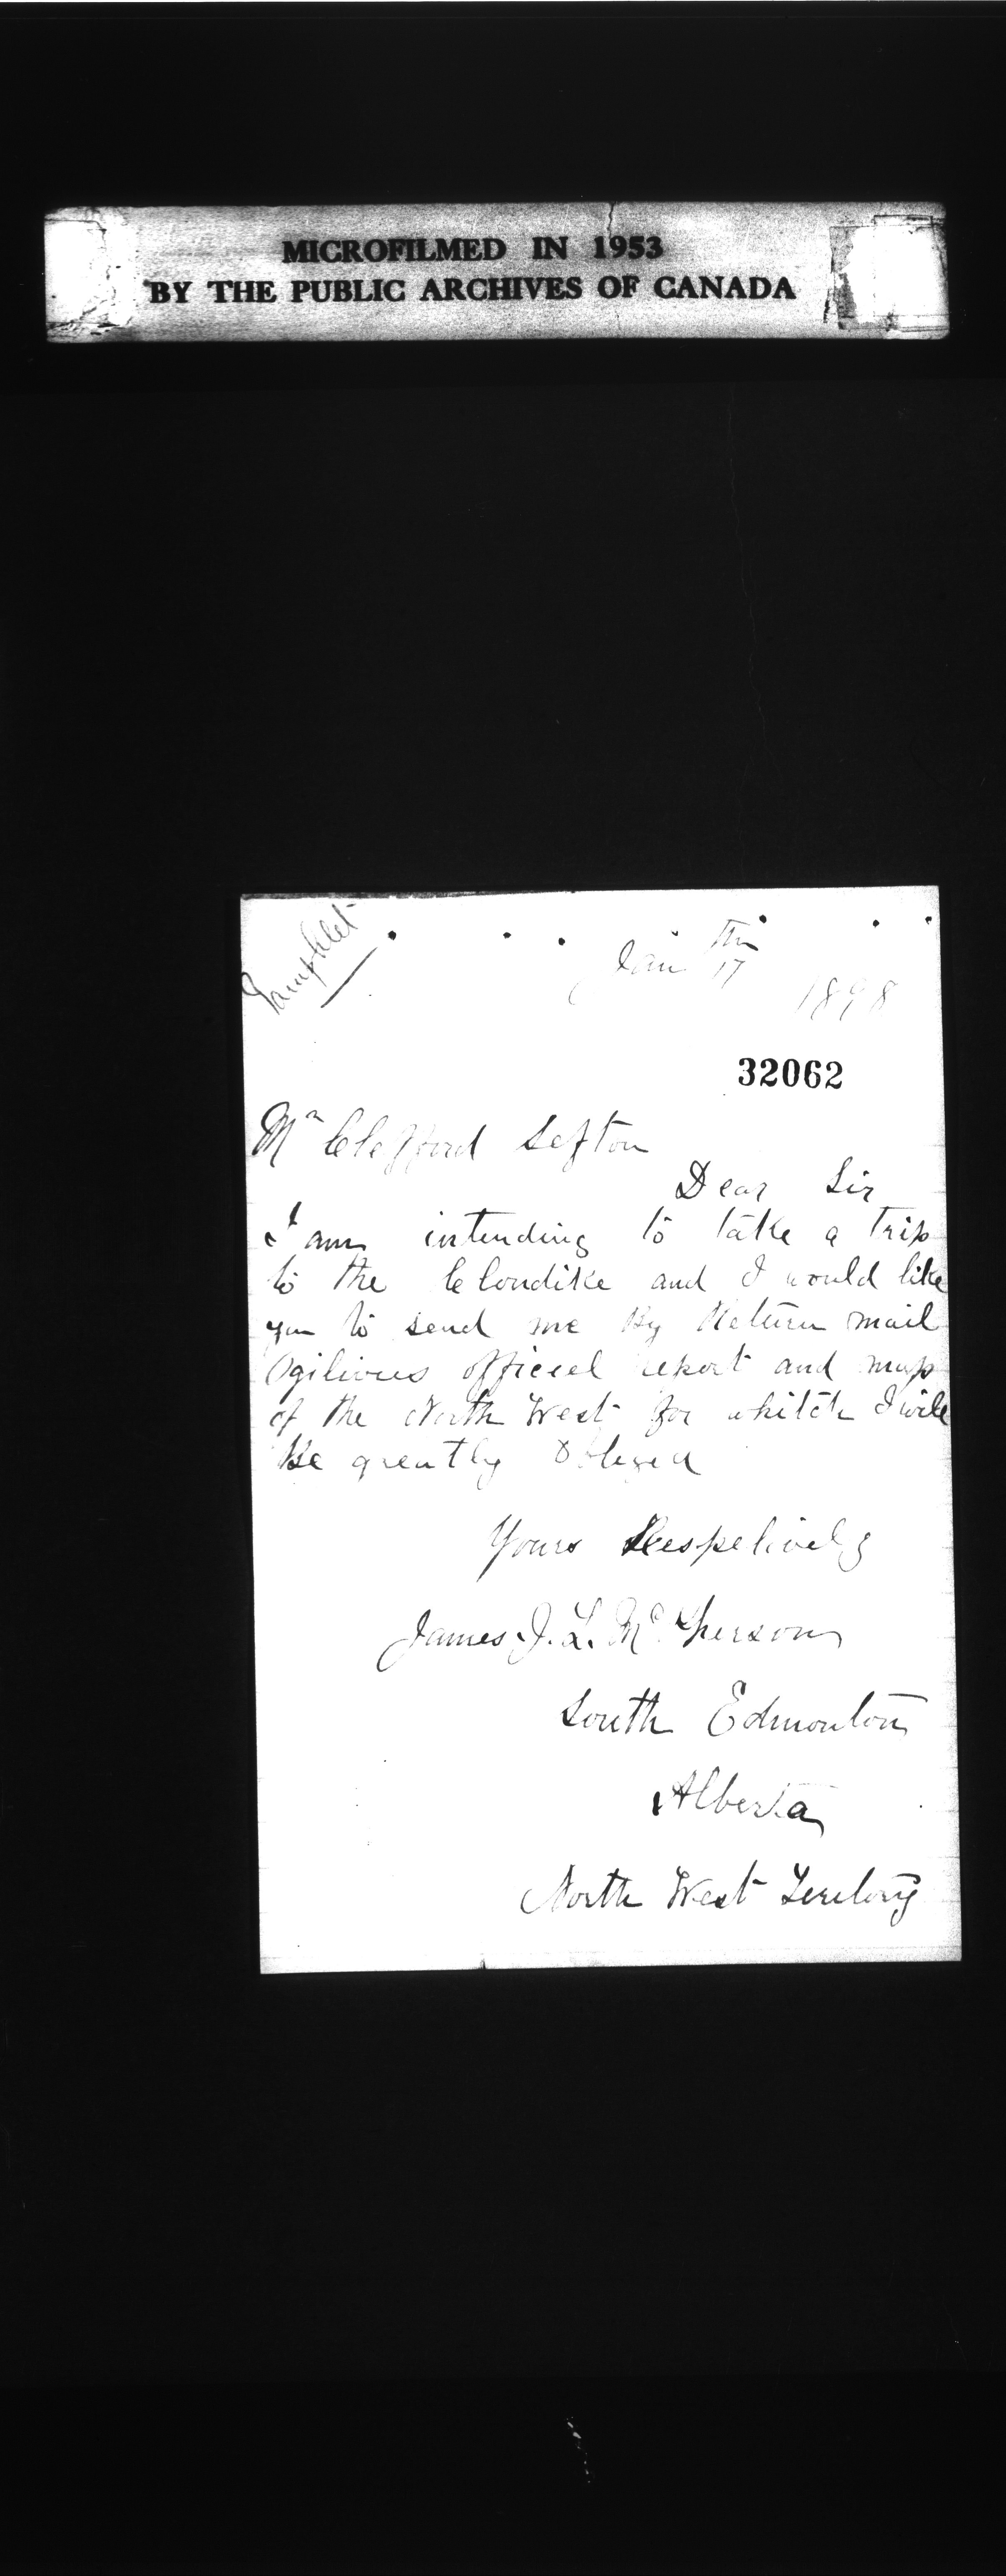 MICROFILMED IN 1953
BY THE PUBLIC ARCHIVES OF CANADA
Pamphlet
Jan 17th
1898
32062
Mr Clefford Sefton
Dear Sir
I am intending to take a trip
to the Clondike and I would like
you to send me By Return mail
Ogilivies officeel report and map
of the North West for whitch I will
Be greently Obleged
Yours Respetively
James J. L. McPherson
South Edmonton
Alberta
North West Teretory